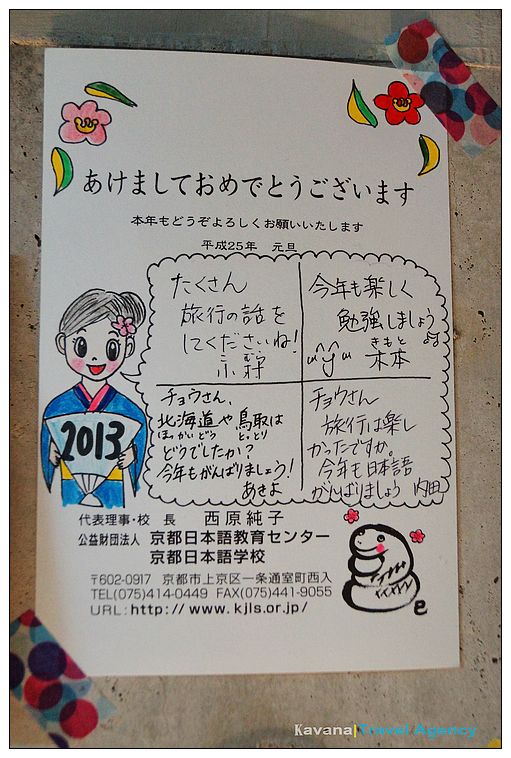 あけましておめでとうございます
本年もどうぞよろしくお願いいたします
平成25年 元旦
たくさん
旅行の話を
してくださいね!
むら
村
今年も楽しく
勉強しましょう
きもと
木本
チョウさん、
北海道や鳥取は
ほっかいどう とっとり
どうでしたか?
今年もがんばりましょう!
あきよ
チョウさん
旅行は楽し
かったですか。
今年も日本語
がんばりましょう 内田
2013
代表理事・校 長 西原純子
公益財団法人 京都日本語教育センター
京都日本語学校
〒602-0917 京都市上京区一条通室町西入
TEL(075)414-0449 FAX(075)441-9055
URL:http://www.kjls.or.jp/
巳
Kavana|Travel Agency